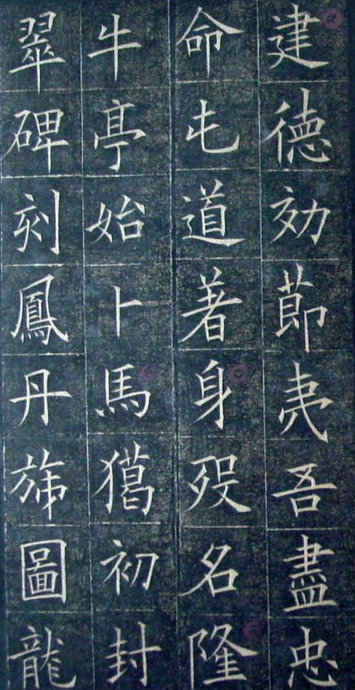 建德効節夷吾盡忠
命屯道著身歿名隆
牛亭始卜馬獦初封
翠碑刻鳳丹斾圖龍